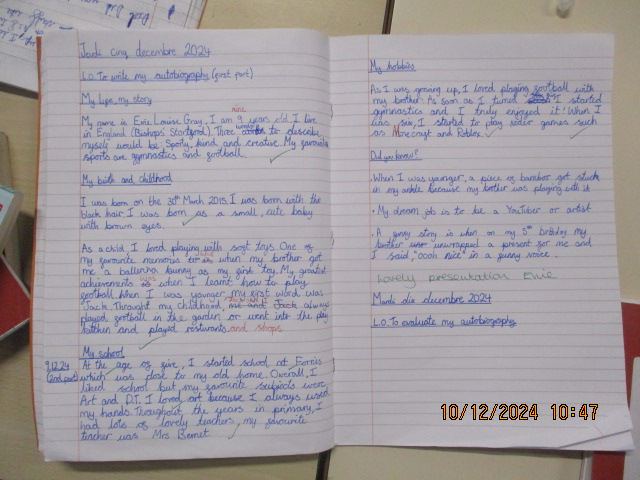 Jeudi cinq decembre 2024
L.O. To write my autobiography (first part)
My life, my story
nine
My name is Evie Louise Gray, I am 9 years old. I live
in England (Bishops Stortford). Three to describe
myself would be: Sporty, kind and creative. My favourite
sports are gymnastics and football.
My birth and childhood
I was born on the 30th March 2015. I was born with the
black hair. I was born as a small, cute baby
with brown eyes.
As a child, I loved playing with soft toys. One of
my favourite memories is when my brother got
me a ballerina bunny as my first toy. My greatest
achievements was when I learnt how to play
football. When I was younger, my first word was
Jack. Throught my childhood, me and Jack always
played football in the garden or went into the play
kitchen and played resturants and shops.
My school
9.12.24
(2nd part)
At the age of five, I started school at
which was close to my old home. Overall, I
liked school but my favourite subjects were
Art and D.T. I loved art because I always used
my hands. Throughout the years in primary, I
had lots of lovely teachers, my favourite
teacher was Mrs
My hobbies
As I was growing up, I loved playing football with
my brother. As soon as I turned I started
gymnastics and I truly enjoyed it! When I
was six, I started to play video games such
as Minecraft and Roblox.
Did you know?
• When I was younger, a piece of bamboo got stuck
in my ankle because my brother was playing with it
• My dream job is to be a YouTuber or artist
• A funny story is when on my 5th birthday my
brother unwrapped a present for me and
I said "oooh nice" in a funny voice.
Lovely presentation Evie
Mardi dix decembre 2024
L.O. To evaluate my autobiography
10/12/2024 10:47